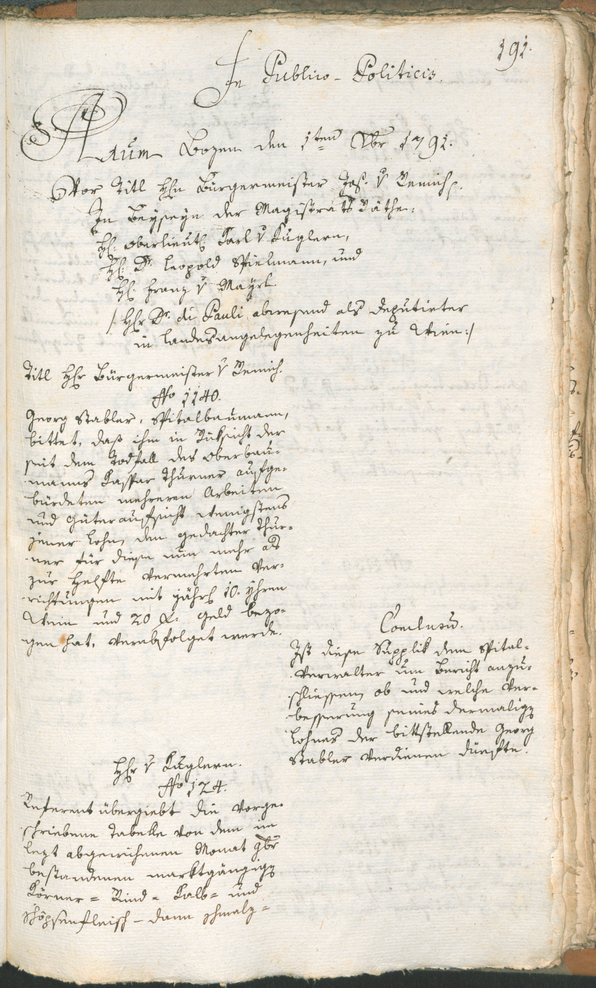 191.
In Publico-Politicis.
Actum Bozen den 1ten Xbr 1791.
Vor Titl Hhn Bürgermeister Jos. v Remich.
In Beyseyn der Magistrats Räthe.
Hh. Oberlieut. Karl v Kuglern,
Hh. Dr. Leopold Spielmann, und
Hh. Franz v Mayrl.
/: Hhr Dr. di Pauli abwesend als deputierter
in Landesangelegenheiten zu Wien :/
Titl Hhr Bürgermeister v Remich.
No 1140.
Georg Stabler, Spitalbaumann,
bittet, daß ihm in Rüksicht der
seit dem Todfall des Oberbau-
manns Kaspar Thurner aufge-
bürdeten mehreren Arbeiten
und Güteraufsicht wenigstens
jener Lohn, den gedachter Thur-
ner für diese nun mehr als
zur Helfte vermehrten Ver-
richtungen mit jährl. 10. Yhren
Wein und 20 f. Geld bezo-
gen hat, verabfolget werde.
Conclusum.
Ist diese Supplik dem Spital-
verwalter um Bericht anzu-
schliessen, ob und welche Ver-
besserung seines dermaligen
Lohnes der bittstellende Georg
Stabler verdienen dürfte.
Hhr v Kuglern.
No 124.
Referent übergiebt die vorge-
schriebene Tabelle von dem im
lezt abgewichenen Monat 9br
bestandenen marktgängigen
Körner- Rind- Kalb- und
Schöpsenfleisch- dann Schmalz-